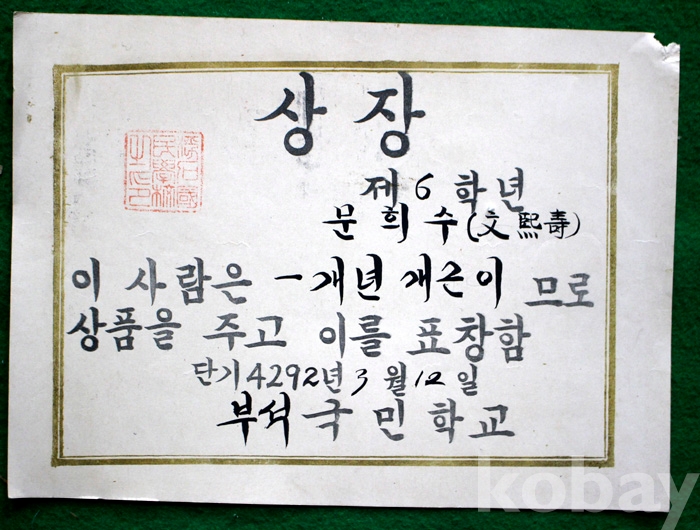 상장
제6학년
문희수(文熙壽)
이 사람은 一개년 개근이 므로
상품을 주고 이를 표창함
단기4292년 3월12일
부석국민학교
浮石國
民學校
之印
kobay